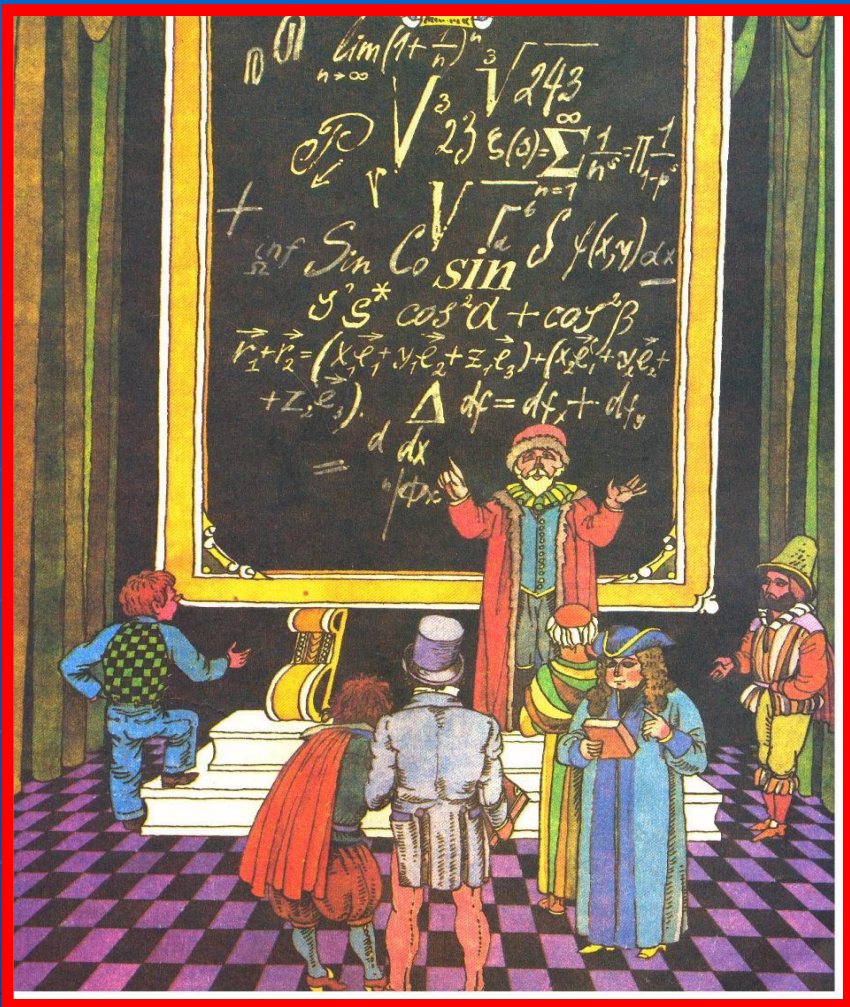 lim(1+1/n)^n
n→∞
∛243
√ 3 23 ξ(s)=∑_{n=1}^{∞} 1/n^s=∏ 1/1-p^s
P
r
+ √ Γ
inf Ω Sin Co sin ∫ ψ(x,y) dx
y' S* cos²α + cos²β
r⃗₁+r⃗₂=(x₁e⃗₁+y₁e⃗₂+z₁e⃗₃)+(x₂e⃗₁+y₂e⃗₂+
+z₂e⃗₃). Δ df=df_x+df_y
d dx
=